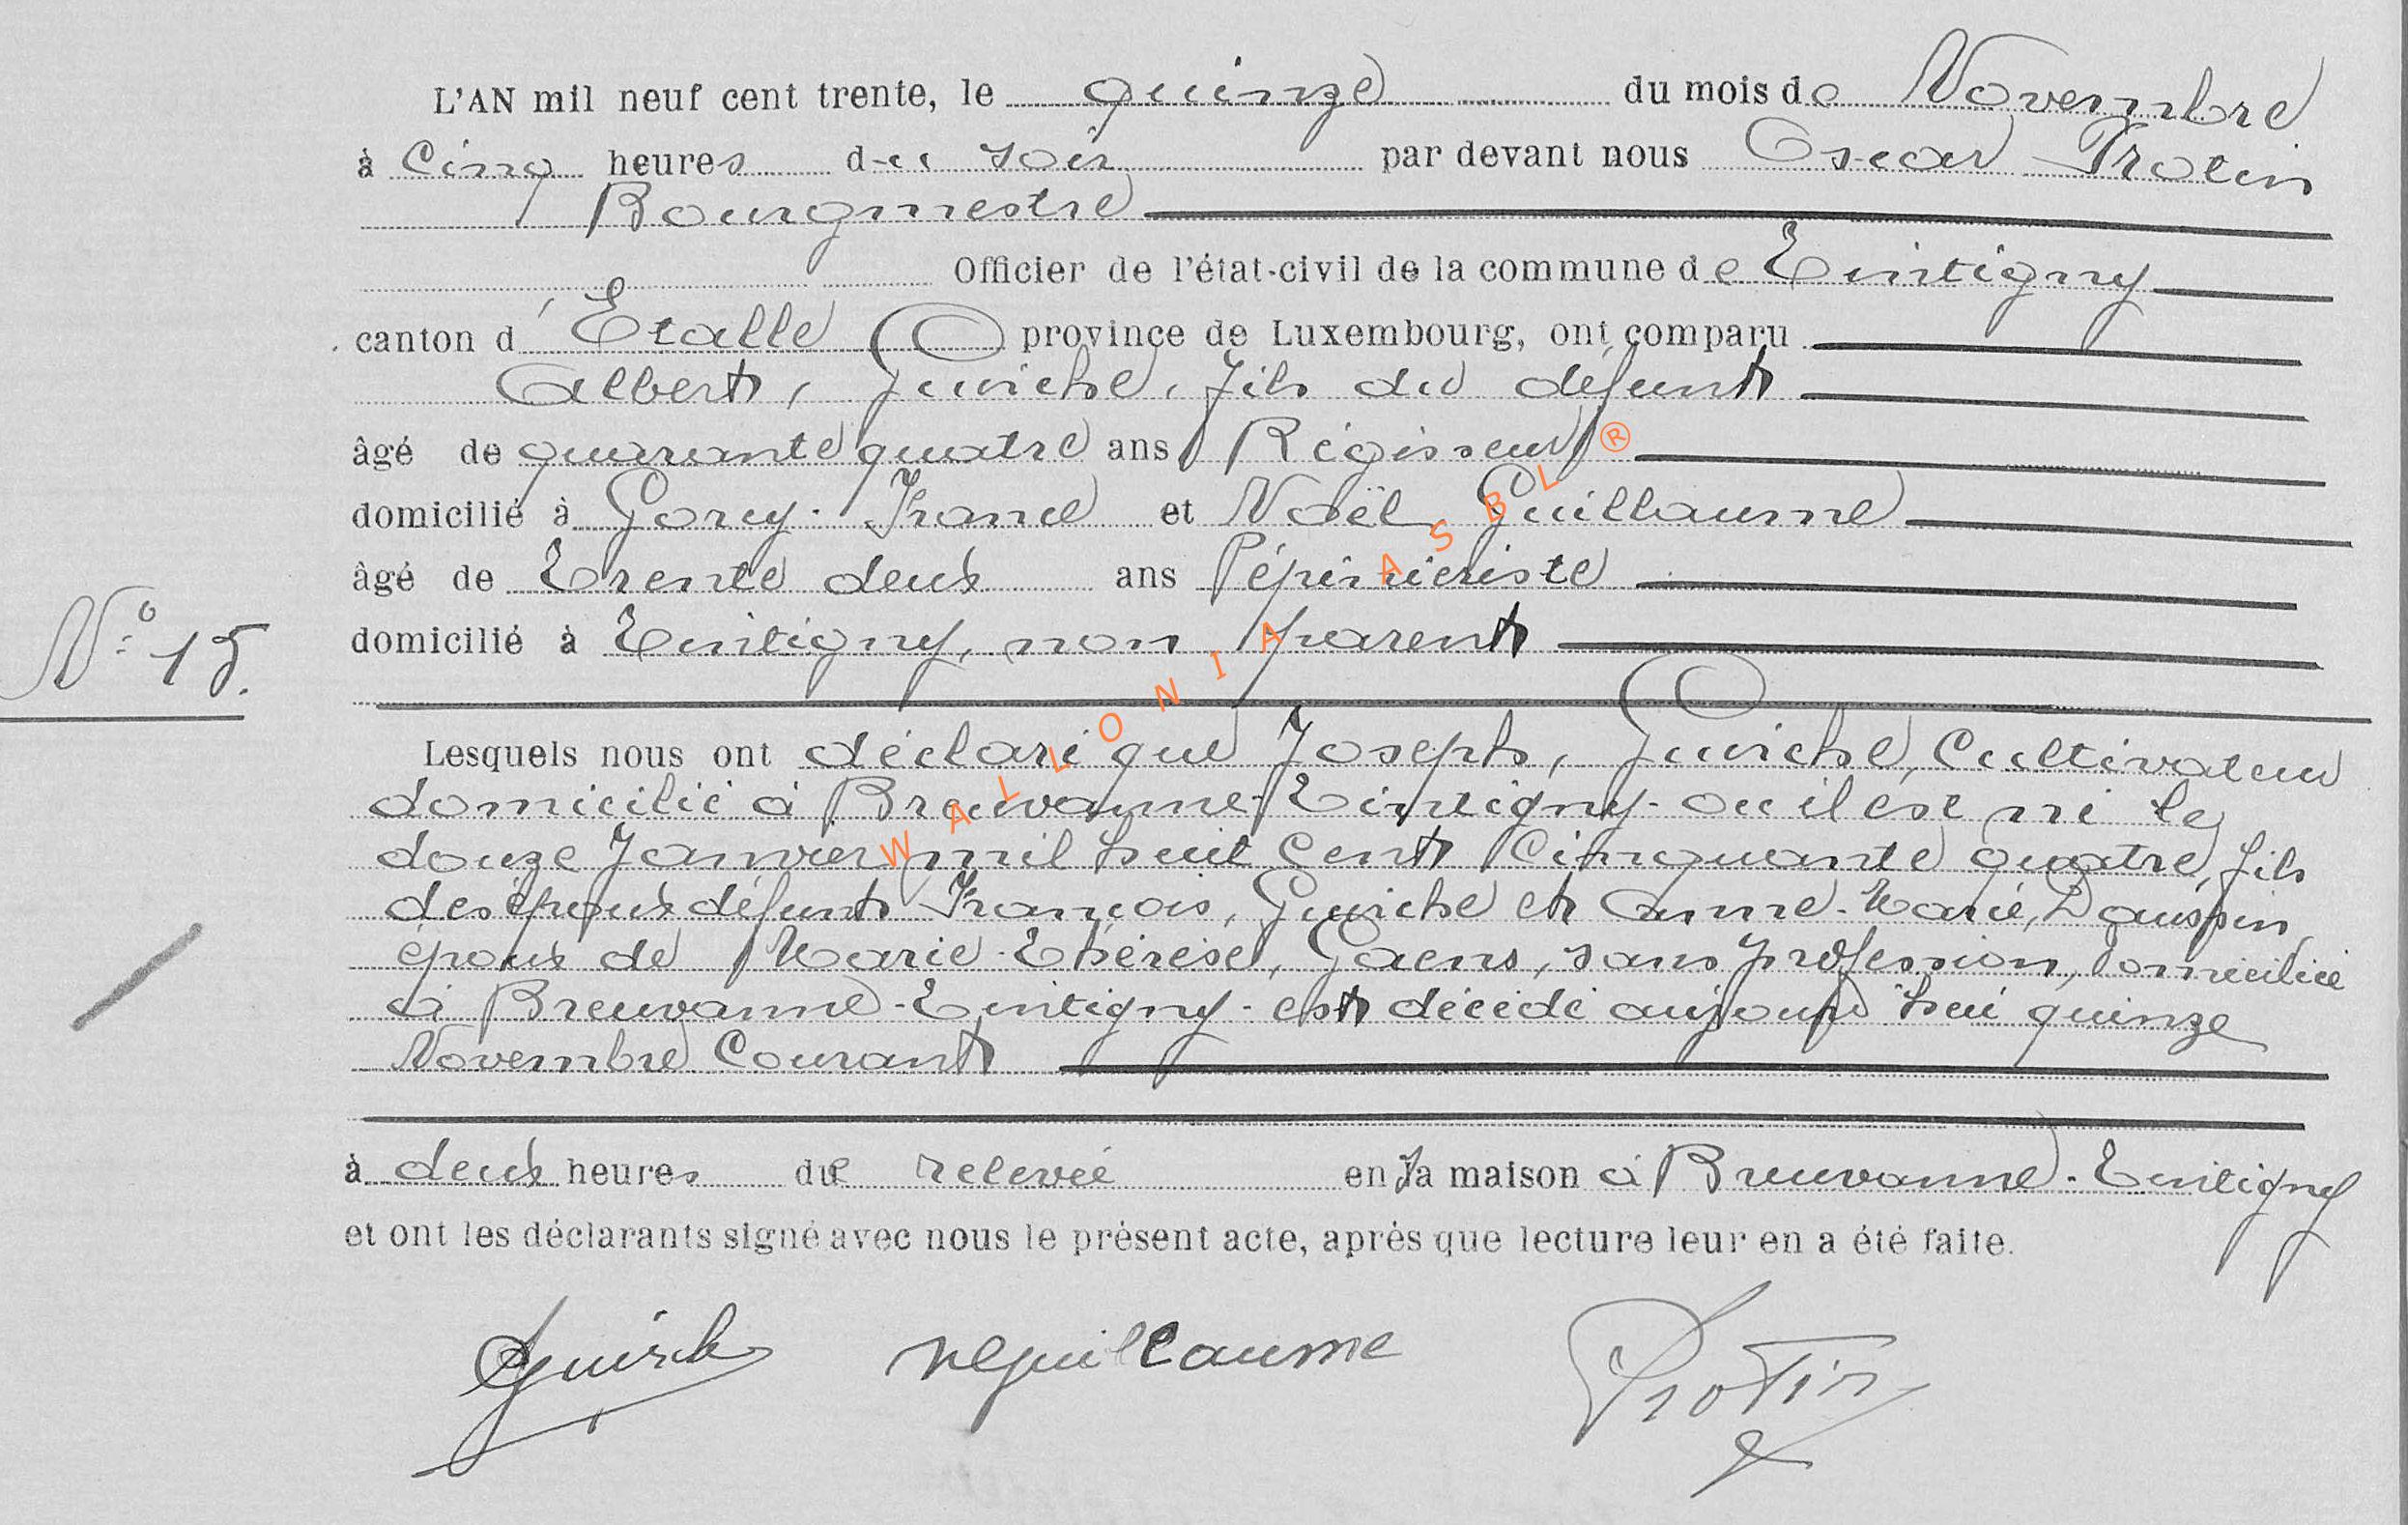 L'AN mil neuf cent trente, le quinze du mois de Novembre
à Cinq heures du soir par devant nous Oscar Protin
Bourgmestre
Officier de l'état-civil de la commune de Tintigny
canton d'Etalle province de Luxembourg, ont comparu
Albert, Guiche, fils du défunt
âgé de quarante quatre ans Régisseur
domicilié à Gorcy-France et Noël Guillaume
âgé de Trente deux ans Pépinièriste
domicilié à Tintigny, non parent
N° 15.
Lesquels nous ont déclaré que Joseph, Guiche, Cultivateur
domicilié à Breuvanne-Tintigny-ou il est né le
douze Janvier mil huit Cent Cinquante quatre, fils
des époux défunts François, Guiche et Anne-Marie,
époux de Marie-Thérèse, Goens, sans profession, domiciliée
à Breuvanne-Tintigny-est décédé aujourd'hui quinze
Novembre Courant
à deux heures de relevée en sa maison à Breuvanne-Tintigny
et ont les déclarants signé avec nous le présent acte, après que lecture leur en a été faite.
NGuillaume Protin
WALLONIA ASBL ®